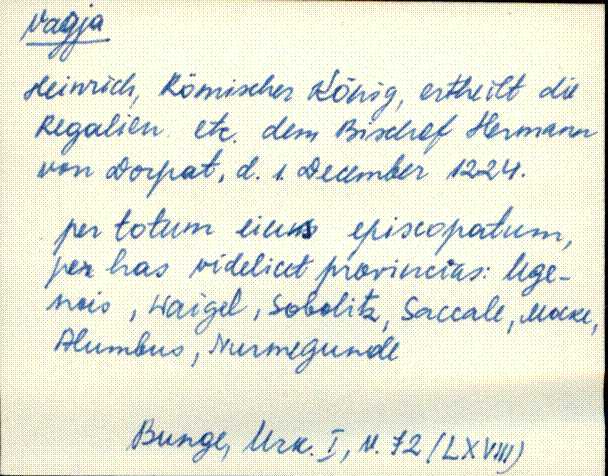 Vagja
Heinrich, Römischer König, ertheilt die
Regalien etc. dem Bischof Hermann
von Dorpat, d. 1. December 1224.
per totum eius episcopatum,
per has videlicet provincias: Uge-
nois, Waigel, Sobolitz, Saccale, Mocke,
Alumbus, Nurmegunde
Bunge, Urk. I, N. 72 (LXVIII)